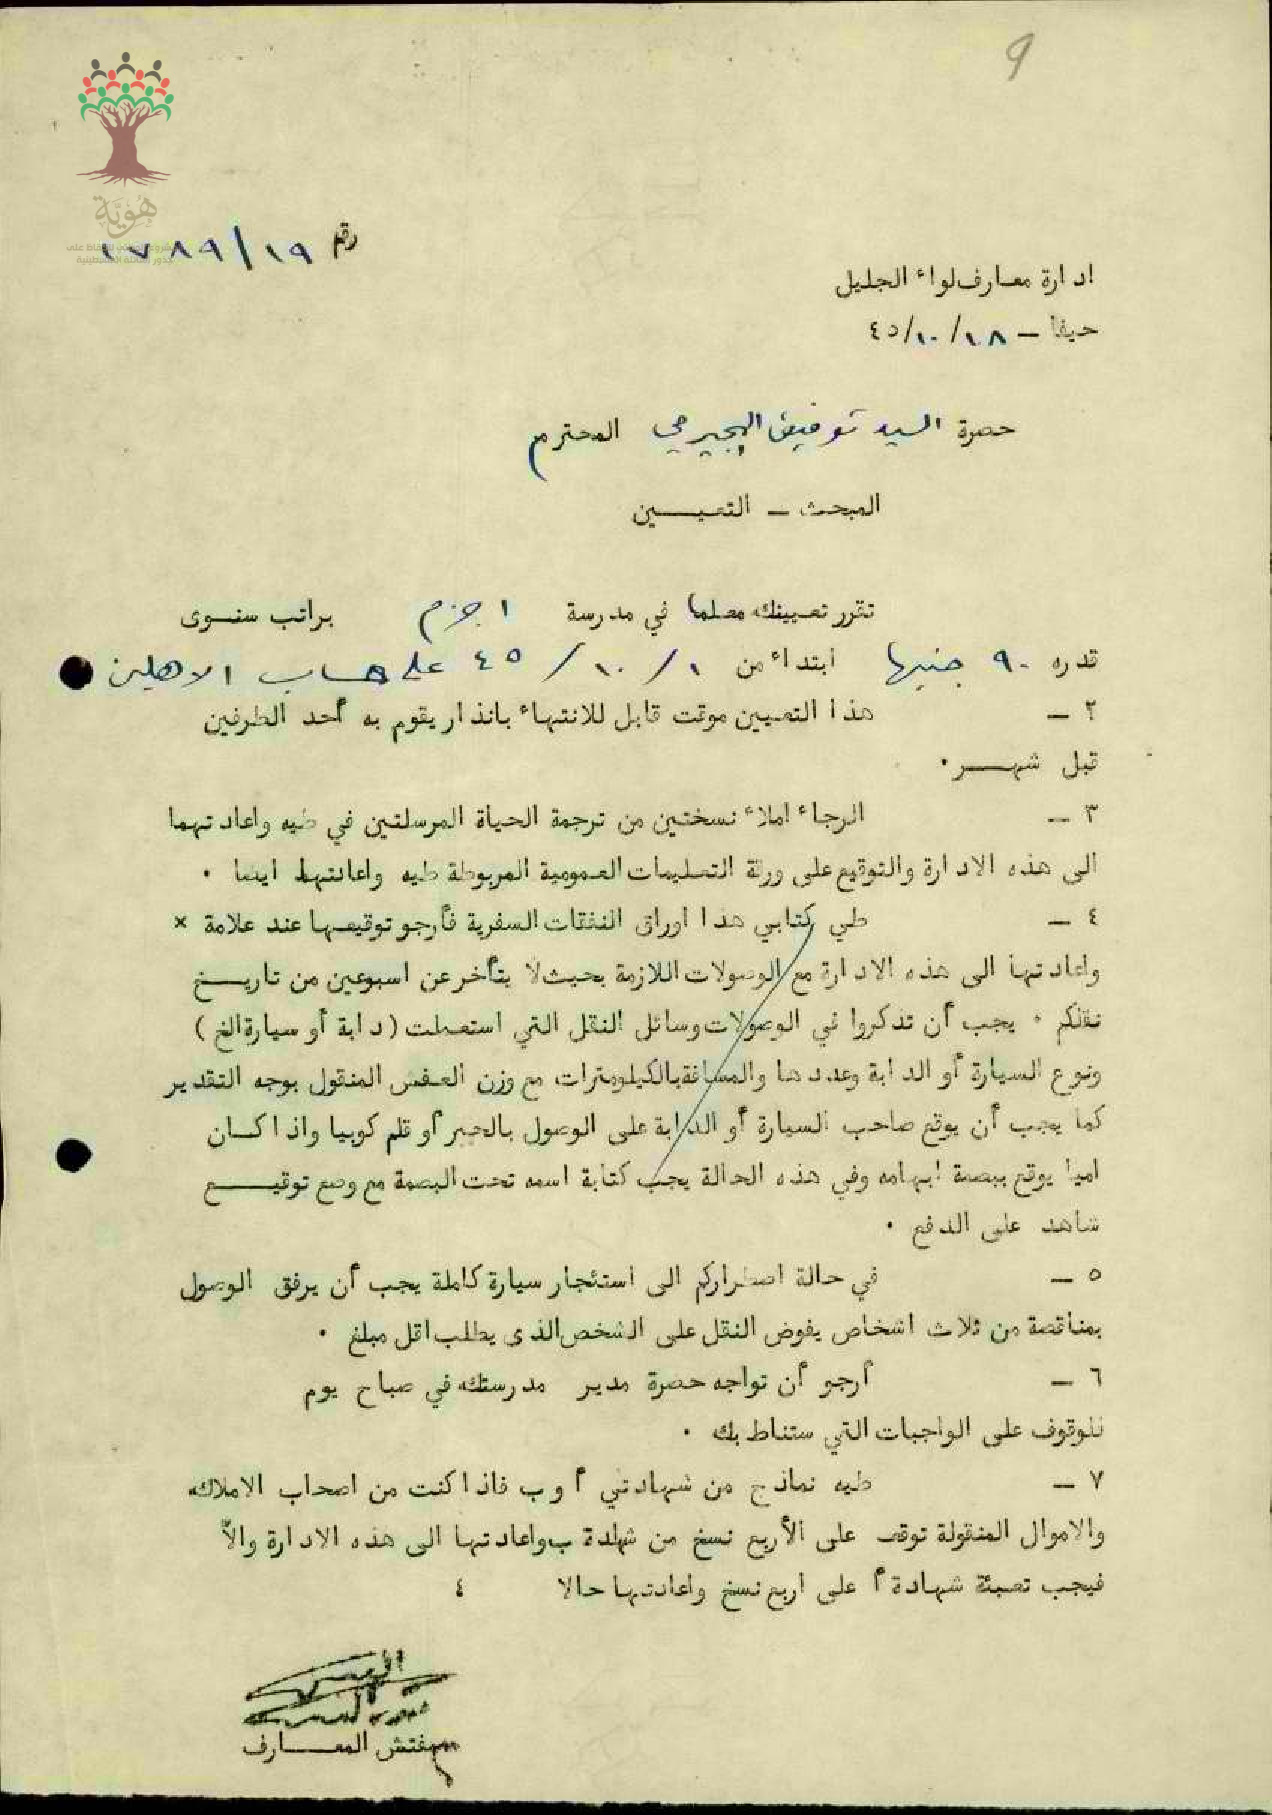 ٩
هُوِيَّة
رقم ١٧٨٩/١٩
ادارة معارف لواء الجليل
حيفا - ١٨/١٠/٤٥
حضرة السيد توفيق البجيرمي المحترم
المبحث - التعيــــين
تقرر تعيينك معلما في مدرسة اجزم براتب سنوى
قدره ٩٠ جنيها ابتداء من ١/١٠/٤٥ على حساب الاهلين
٢ - هذا التعيين موقت قابل للانتهاء بانذار يقوم به أحد الطرفين
قبل شهــر٠
٣ - الرجاء املاء نسختين من ترجمة الحياة المرسلتين في طيه واعادتهما
الى هذه الادارة والتوقيع على ورقة التعليمات العمومية المربوطة طيه واعادتها ايضا ٠
٤ - طي كتابي هذا اوراق النفقات السفرية فأرجو توقيعها عند علامة ×
واعادتها الى هذه الادارة مع الوصولات اللازمة بحيث لا يتأخر عن اسبوعين من تاريــخ
نقلكم ٠ يجب أن تذكروا في الوصولات وسائل النقل التي استعملت (دابة أو سيارة الخ)
ونوع السيارة أو الدابة وعددها والمسافة بالكيلومترات مع وزن العفش المنقول بوجه التقدير
كما يجب أن يوقع صاحب السيارة أو الدابة على الوصول بالحبر أو قلم كوبيا واذا كــان
اميا يوقع ببصمة ابهامه وفي هذه الحالة يجب كتابة اسمه تحت البصمة مع وضع توقيــــع
شاهد على الدفع ٠
٥ - في حالة اضطراركم الى استئجار سيارة كاملة يجب أن يرفق الوصول
بمناقصة من ثلاث اشخاص يفوض النقل على الشخص الذى يطلب اقل مبلغ ٠
٦ - أرجو أن تواجه حضرة مدير مدرستك في صباح يوم
للوقوف على الواجبات التي ستناط بك ٠
٧ - طيه نماذج من شهادتي أ و ب فاذا كنت من اصحاب الاملاك
والاموال المنقولة توقع على الأربع نسخ من شهادة ب واعادتها الى هذه الادارة والاّ
فيجب تعبئة شهادة أ على اربع نسخ واعادتها حالا ٤
مفتش المعــــارف